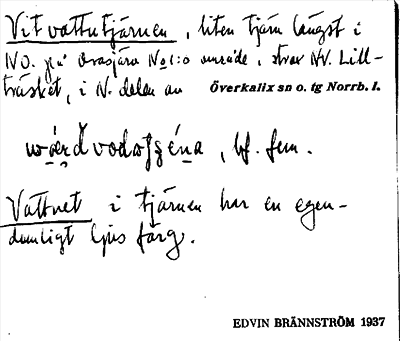 Vitvattutjärnen, liten tjärn längst i
NO. på Orasjära No1:o område, strax NV. Lill-
träsket, i N. delen av Överkalix sn o. tg Norrb. l.
, bf. fem.
Vattnet i tjärnen har en egen-
domligt ljus färg.
EDVIN BRÄNNSTRÖM 1937